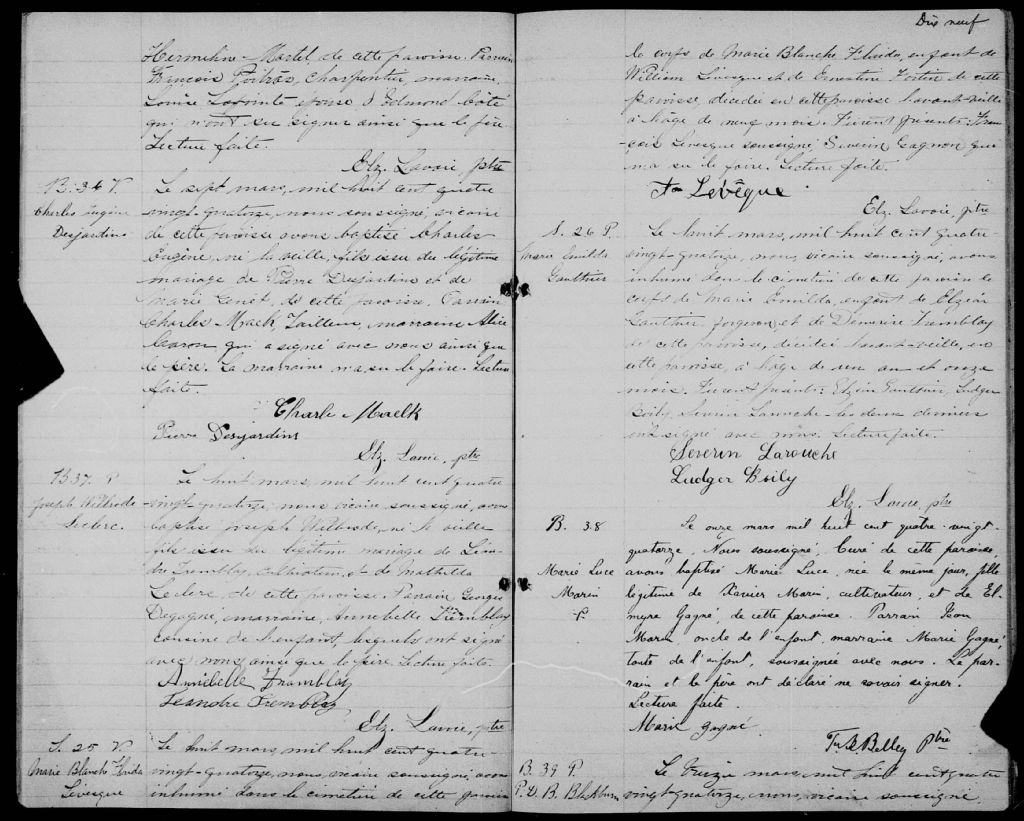 Hermeline Martel, de cette paroisse. Parrain
François Poitras, charpentier, marraine,
Louise Lapointe épouse d'Edmond Côté
qui n'ont su signer ainsi que le père.
Lecture faite.
Elz. Lavoie, ptre
B. 36 V.
Charles Eugène
Desjardins
Le sept mars, mil huit cent quatre
vingt-quatorze, nous soussigné, vicaire
de cette paroisse avons baptisé Charles
Eugène, né la veille, fils issu du légitime
mariage de Pierre Desjardins et de
Marie Genêt, de cette paroisse. Parrain
Charles Mack, Tailleur, marraine Alice
Caron qui a signé avec nous ainsi que
le père. La marraine n'a su le faire. Lecture
faite.
Charle Maelk
Pierre Desjardins
Elz. Lavoie, ptre
B 37. P
Joseph Wilbrode
Leclerc.
Le huit mars, mil huit cent quatre
vingt-quatorze, nous vicaire soussigné, avons
baptisé Joseph Wilbrode, né la veille
fils issu du légitime mariage de Léan-
dre Tremblay, cultivateur, et de Mathilda
Leclerc, de cette paroisse. Parrain Georges
Degagné, marraine, Annabelle Tremblay
cousine de l'enfant, lesquels ont signé
avec nous ainsi que le père. Lecture faite.
Annibelle Tramblay
Leandre Tremblay
Elz. Lavoie, ptre
S. 25 V.
Marie Blanche Florida
Lévesque
Le huit mars, mil huit cent quatre-
vingt-quatorze, nous, vicaire soussigné, avons
inhumé dans le cimetière de cette paroisse
Dix neuf
le corps de Marie Blanche Florida, enfant de
William Lévesque et de Ernestine Fortin de cette
paroisse, décédée en cette paroisse l'avant-veille
à l'âge de neuf mois. Furent présents: Fran-
-çois Levesque soussigné Severin Gagnon qui
n'a su le faire. Lecture faite.
Fs Levêque
Elz. Lavoie, ptre
S. 26 P.
Marie Emilda
Gauthier
Le huit mars, mil huit cent quatre-
vingt-quatorze, nous, vicaire soussigné, avons
inhumé dans le cimetière de cette paroisse le
corps de Marie Emilda, enfant de Elzéar
Gauthier, forgeron, et de Demerise Tremblay
de cette paroisse, décédée l'avant-veille, en
cette paroisse, à l'âge de un an et onze
mois. Furent présents: Elzéar Gauthier, Ludger
Boily, Severin Larouche - les deux derniers
ont signé avec nous. Lecture faite.
Severin Larouche
Ludger Boily
Elz. Lavoie, ptre
B. 38
Marie Luce
Morin
P
Le onze mars mil huit cent quatre-vingt-
quatorze, Nous soussigné, Curé de cette paroisse,
avons baptisé Marie Luce, née le même jour, fille
légitime de Xavier Morin, cultivateur, et de El-
myre Gagné, de cette paroisse. Parrain Jean
Morin oncle de l'enfant, marraine Marie Gagné,
tante de l'enfant, soussignée avec nous. Le par-
rain et le père ont déclaré ne savoir signer.
Lecture faite.
Marie gagné
Ptre
B. 39 P.
P. D. B. Blackburn
Le treize mars, mil huit cent quatre
vingt-quatorze, nous, vicaire soussigné,